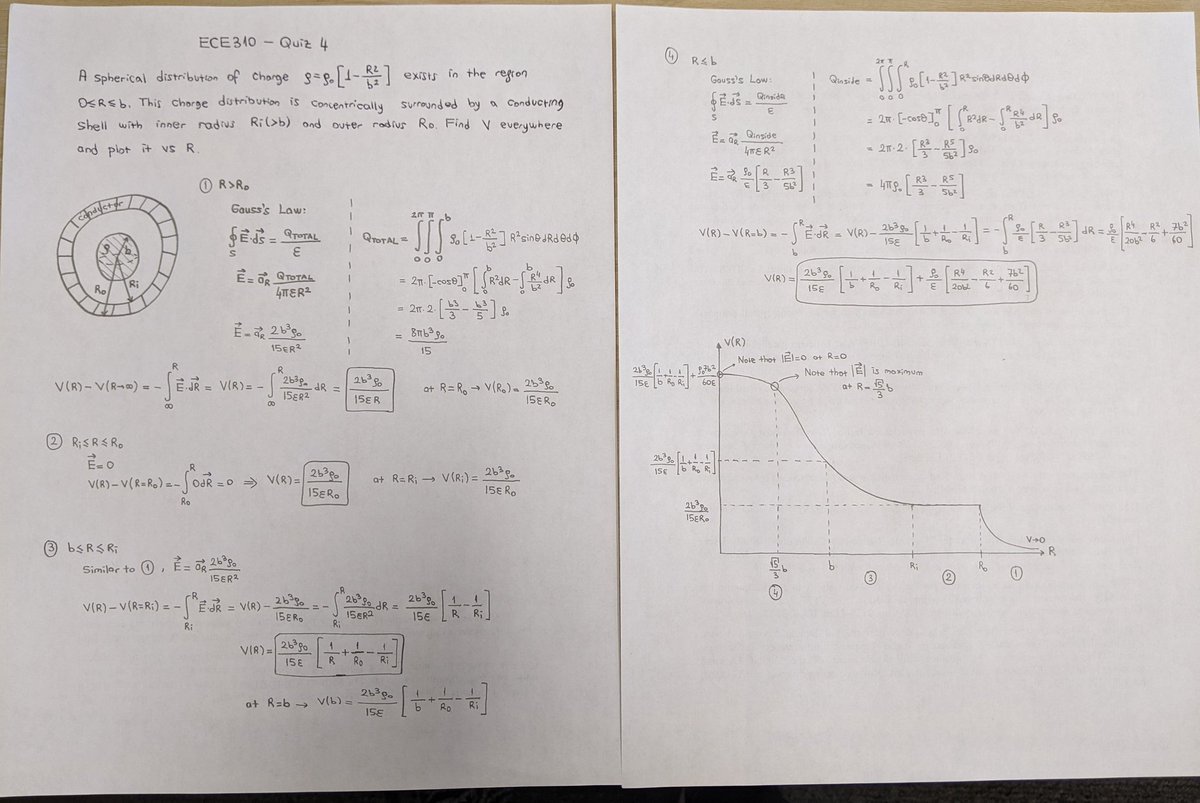 ECE310 - Quiz 4
A spherical distribution of charge ρ=ρ₀[1-R²/b²] exists in the region
0≤R≤b. This charge distribution is concentrically surrounded by a conducting
shell with inner radius Ri(>b) and outer radius Ro. Find V everywhere
and plot it vs R.
conductor
ρ b
Ro Ri
① R>Ro
Gauss's Law:
∮_S E⃗·ds⃗ = Q_TOTAL/ε
E⃗ = a⃗_R Q_TOTAL/4πεR²
E⃗ = a⃗_R 2b³ρ₀/15εR²
Q_TOTAL = ∫₀^2π ∫₀^π ∫₀^b ρ₀[1-R²/b²] R² sinθ dR dθ dϕ
= 2π·[-cosθ]₀^π [∫₀^b R²dR - ∫₀^b R⁴/b² dR] ρ₀
= 2π·2·[b³/3 - b³/5] ρ₀
= 8πb³ρ₀/15
V(R) - V(R→∞) = -∫_∞^R E⃗·dR⃗ = V(R) = -∫_∞^R 2b³ρ₀/15εR² dR = 2b³ρ₀/15εR at R=Ro → V(Ro) = 2b³ρ₀/15εRo
② Ri≤R≤Ro
E⃗=0
V(R) - V(R=Ro) = -∫_Ro^R 0dR⃗ = 0 ⇒ V(R) = 2b³ρ₀/15εRo at R=Ri → V(Ri) = 2b³ρ₀/15εRo
③ b≤R≤Ri
Similar to ①, E⃗ = a⃗_R 2b³ρ₀/15εR²
V(R) - V(R=Ri) = -∫_Ri^R E⃗·dR⃗ = V(R) - 2b³ρ₀/15εRo = -∫_Ri^R 2b³ρ₀/15εR² dR = 2b³ρ₀/15ε [1/R - 1/Ri]
V(R) = 2b³ρ₀/15ε [1/R + 1/Ro - 1/Ri]
at R=b → V(b) = 2b³ρ₀/15ε [1/b + 1/Ro - 1/Ri]
④ R≤b
Gauss's Law:
∮_S E⃗·ds⃗ = Qinside/ε
E⃗ = a⃗_R Qinside/4πεR²
E⃗ = a⃗_R ρ₀/ε [R/3 - R³/5b²]
Qinside = ∫₀^2π ∫₀^π ∫₀^R ρ₀[1-R²/b²] R² sinθ dR dθ dϕ
= 2π·[-cosθ]₀^π [∫₀^R R²dR - ∫₀^R R⁴/b² dR] ρ₀
= 2π·2·[R³/3 - R⁵/5b²] ρ₀
= 4πρ₀ [R³/3 - R⁵/5b²]
V(R) - V(R=b) = -∫_b^R E⃗·dR⃗ = V(R) - 2b³ρ₀/15ε [1/b + 1/Ro - 1/Ri] = -∫_b^R ρ₀/ε [R/3 - R³/5b²] dR = ρ₀/ε [R⁴/20b² - R²/6 + 7b²/60]
V(R) = 2b³ρ₀/15ε [1/b + 1/Ro - 1/Ri] + ρ₀/ε [R⁴/20b² - R²/6 + 7b²/60]
V(R)
Note that |E⃗|=0 at R=0
2b³ρ₀/15ε [1/b + 1/Ro - 1/Ri] + ρ₀7b²/60ε
Note that |E⃗| is maximum
at R = √5/3 b
2b³ρ₀/15ε [1/b + 1/Ro - 1/Ri]
2b³ρ₀/15εRo
V→0
R
√5/3 b b Ri Ro
④ ③ ② ①